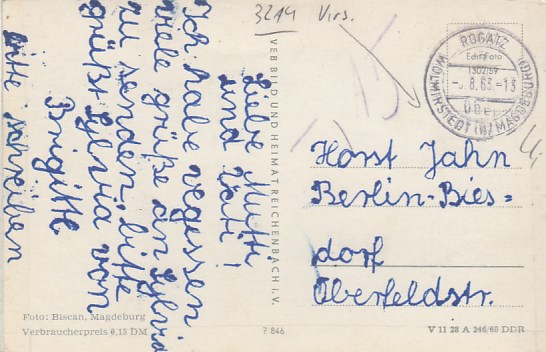 3214 Virs.
Liebe Mutti
und Vati!
Ich habe vegessen
viele grüße an Sylvia
zu senden, bitte
grüßt Sylvia von
Brigitte
bitte schreiben
VEB BILD UND HEIMAT REICHENBACH I. V.
ROGÄTZ
Echt Foto
1302/59
8.63.-13
ÜBER
WOLMIRSTEDT (Bz MAGDEBURG)
Horst Jahn
Berlin-Bies=
dorf
Oberfeldstr.
Foto: Biscan, Magdeburg
Verbraucherpreis 0,15 DM
7 846
V 11 28 A 246/60 DDR